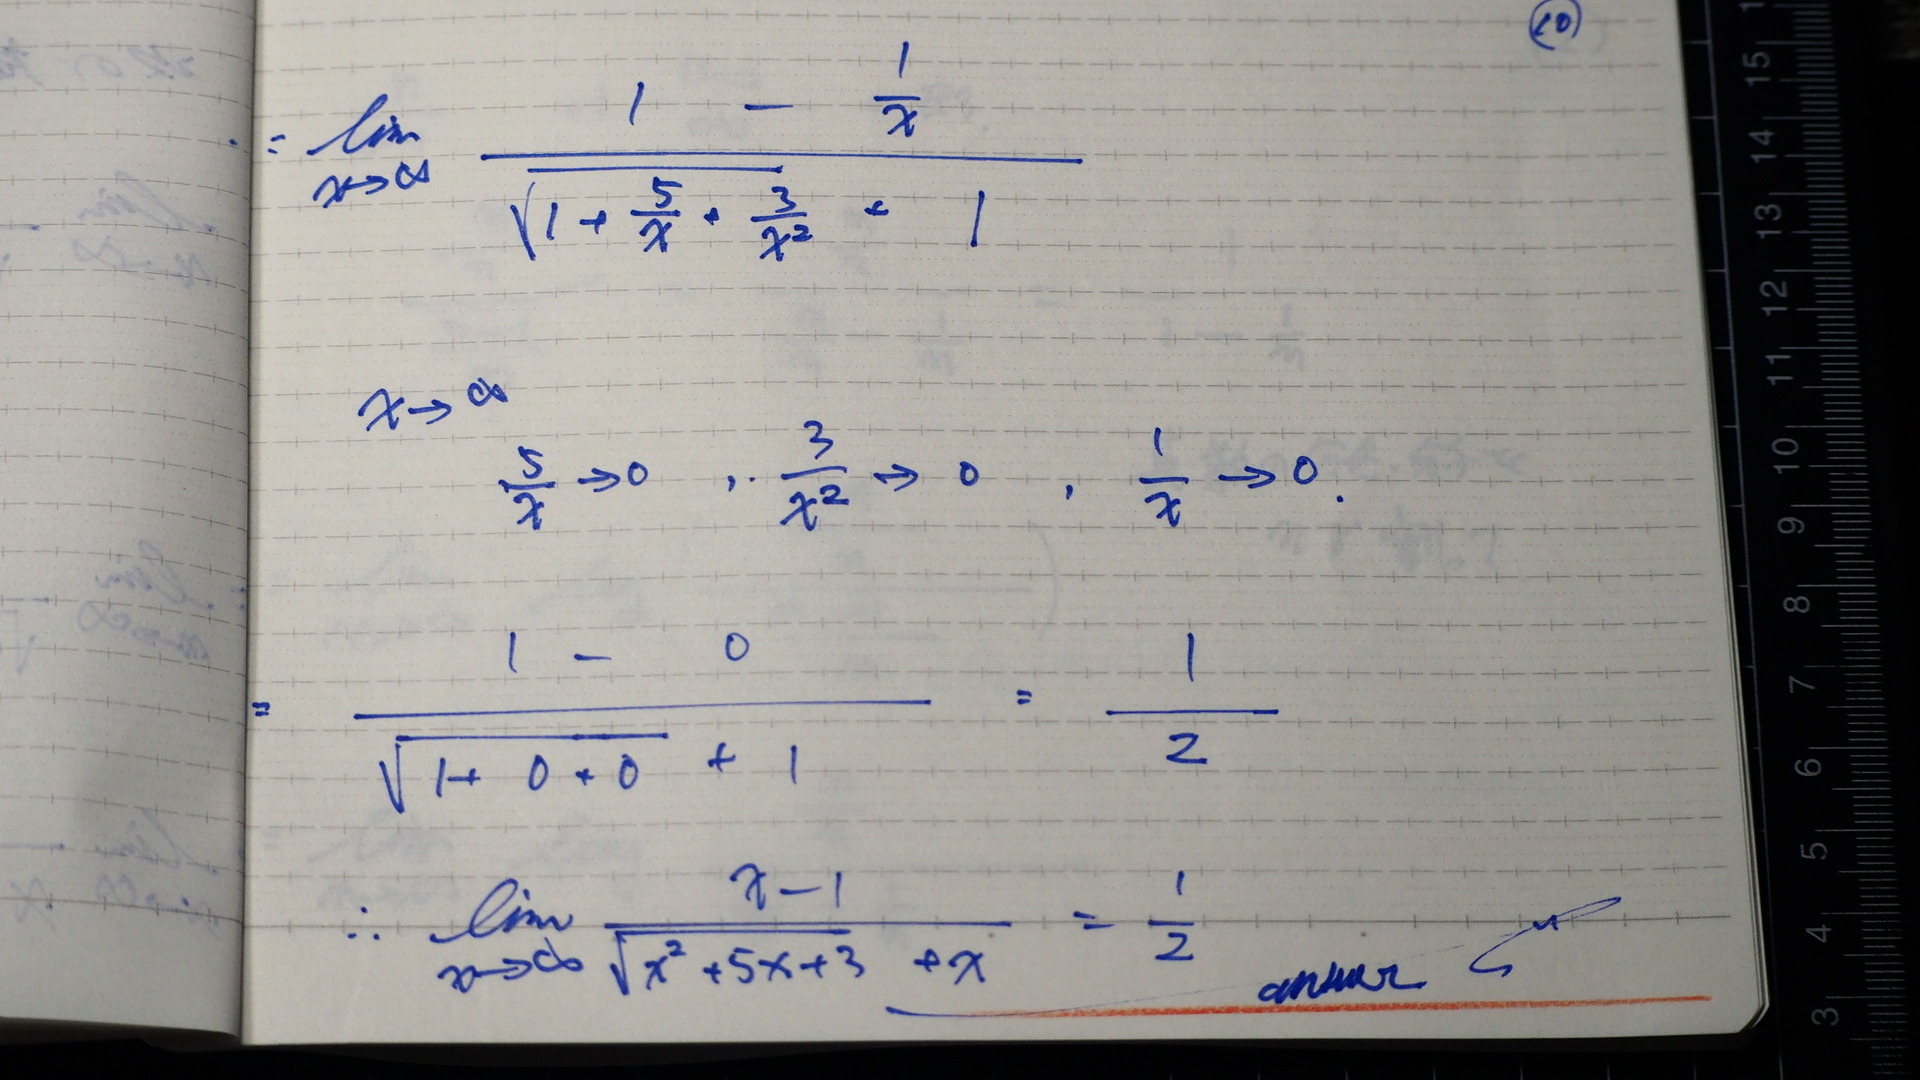 10
∴ = lim x→∞ (1 - 1/x) / (√(1 + 5/x + 3/x²) + 1)
x→∞
5/x → 0 , 3/x² → 0 , 1/x → 0.
= (1 - 0) / (√(1 + 0 + 0) + 1) = 1/2
∴ lim x→∞ (x - 1) / (√(x² + 5x + 3) + x) = 1/2
answer
15
14
13
12
11
10
9
8
7
6
5
4
3